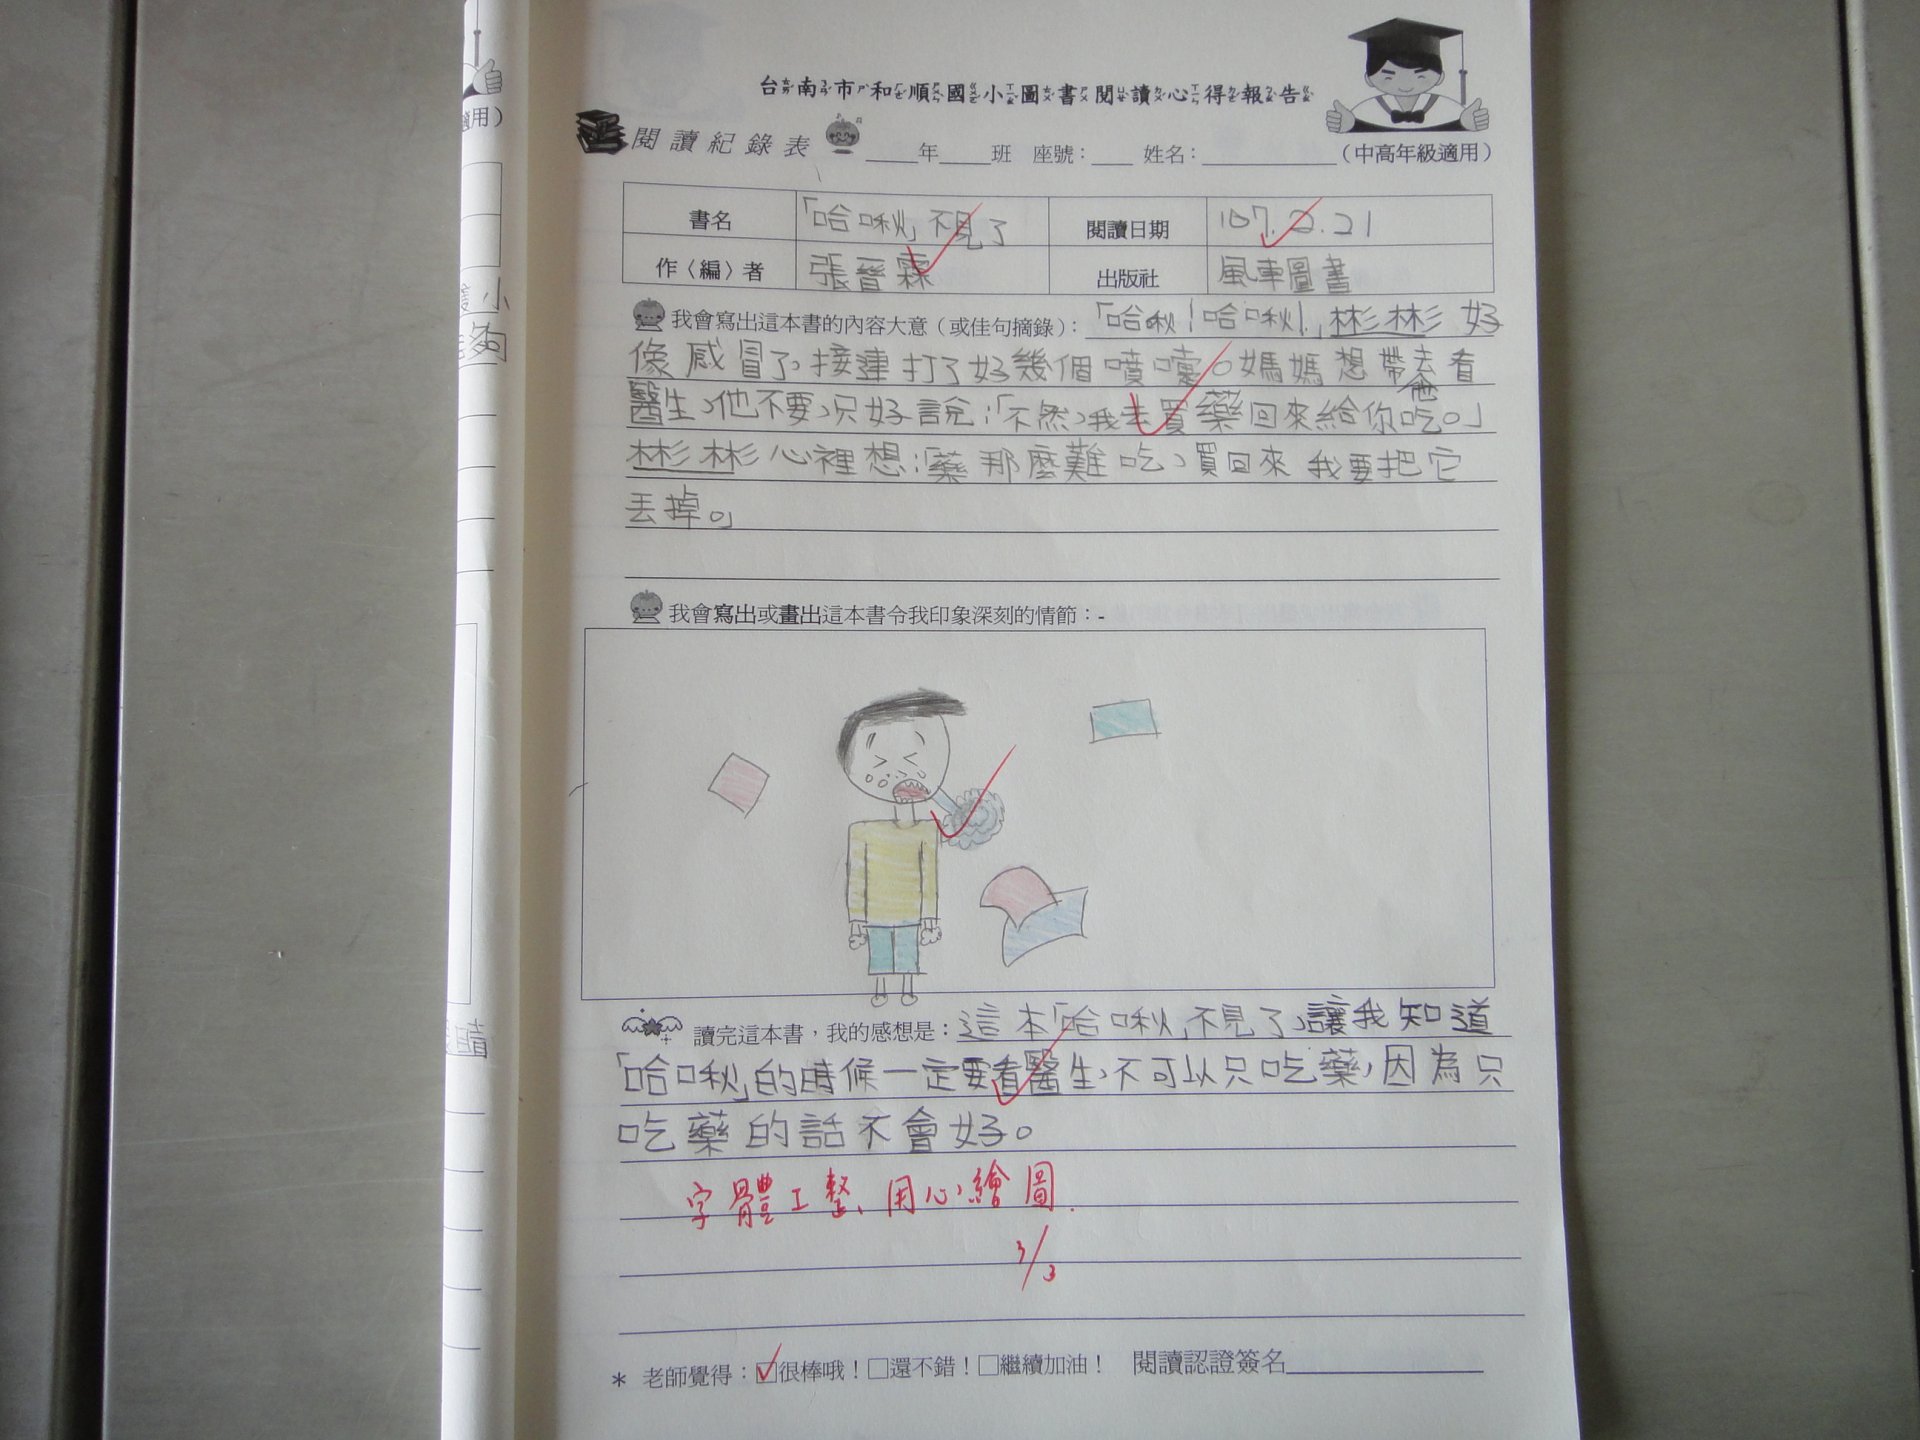 台南市和順國小圖書閱讀心得報告
閱讀紀錄表 ____年____班 座號：___ 姓名：__________（中高年級適用）
書名 「哈啾」不見了 閱讀日期 107.2.21
作〈編〉者 張晉霖 出版社 風車圖書
我會寫出這本書的內容大意（或佳句摘錄）：「哈啾！哈啾！」彬彬好
像感冒了，接連打了好幾個噴嚏。媽媽想帶他去看
醫生，他不要，只好說：「不然，我去買藥回來給你吃。」
彬彬心裡想：「藥那麼難吃，買回來我要把它
丟掉。」
我會寫出或畫出這本書令我印象深刻的情節：-
讀完這本書，我的感想是：這本「哈啾」不見了，讓我知道
「哈啾」的時候一定要看醫生，不可以只吃藥，因為只
吃藥的話不會好。
字體工整、用心繪圖.
3/3
* 老師覺得：☑很棒哦！□還不錯！□繼續加油！ 閱讀認證簽名__________
適用）
小
夠
睛